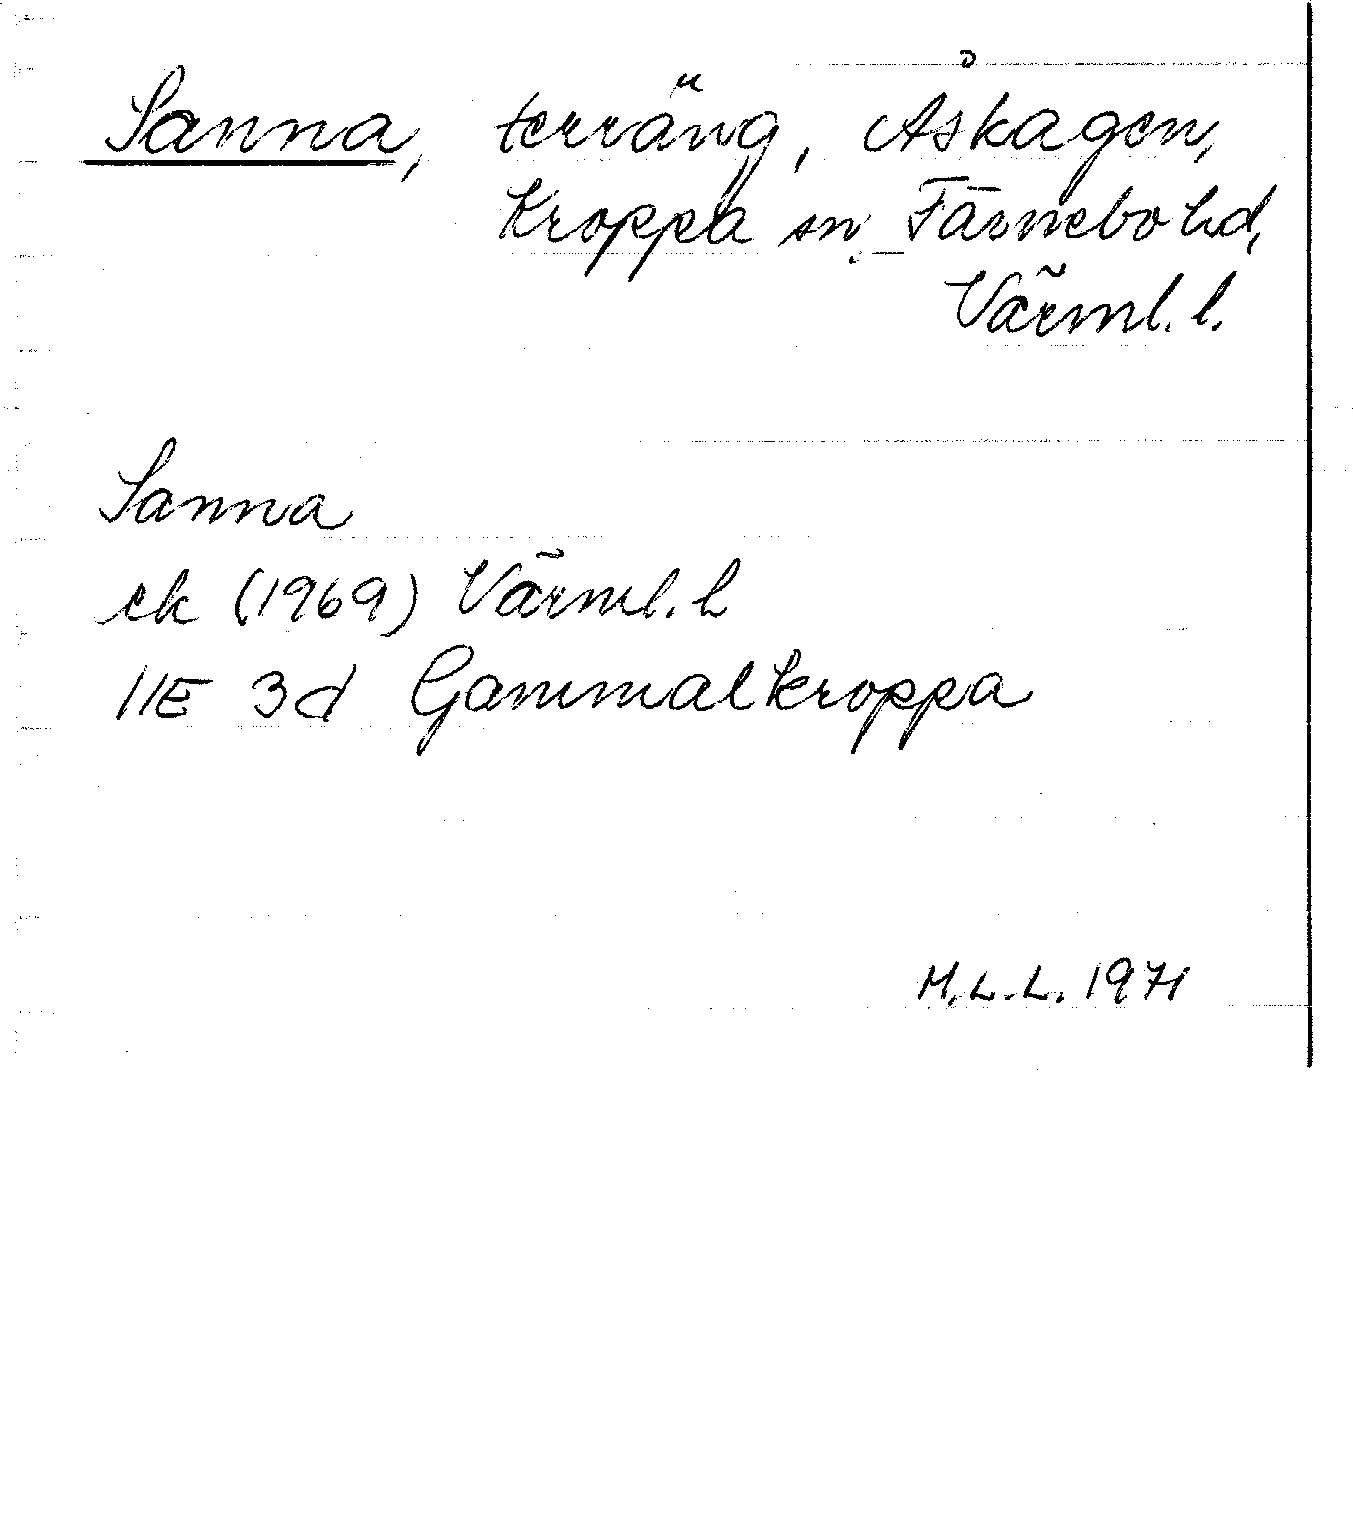 Sanna, terräng, Åskagen,
Kroppa sn, Färnebo hd,
Värml. l.
Sanna
ek (1969) Värml. l
11E 3d Gammalkroppa
M.L.L. 1971